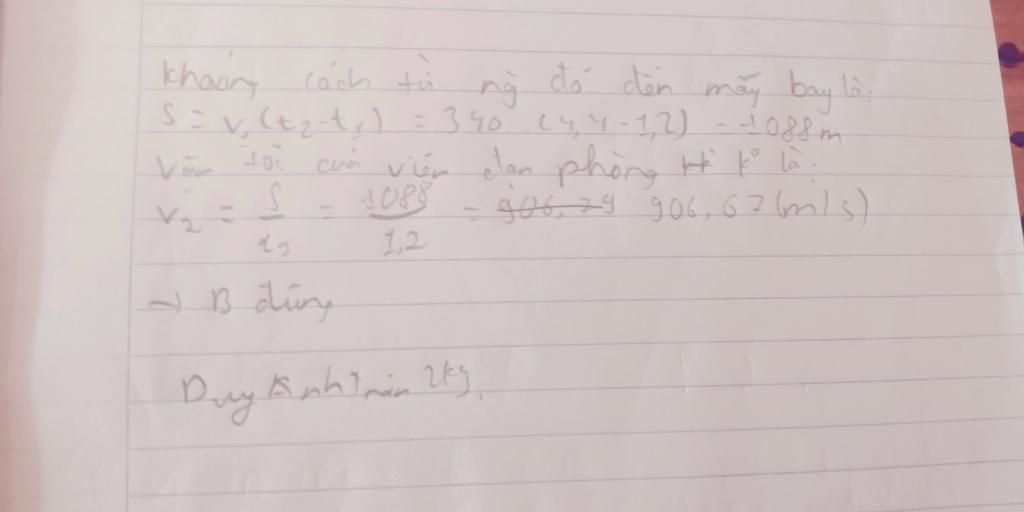 khoảng cách từ ng đó đến máy bay là:
S = v₁(t₂-t₁) = 340 (4,4-1,2) = 1088m
Vận tốc của viên đạn phòng k° là:
v₂ = S/t₁ = 1088/1,2 = 906,67(m/s)
→ B đúng
Duy Anh